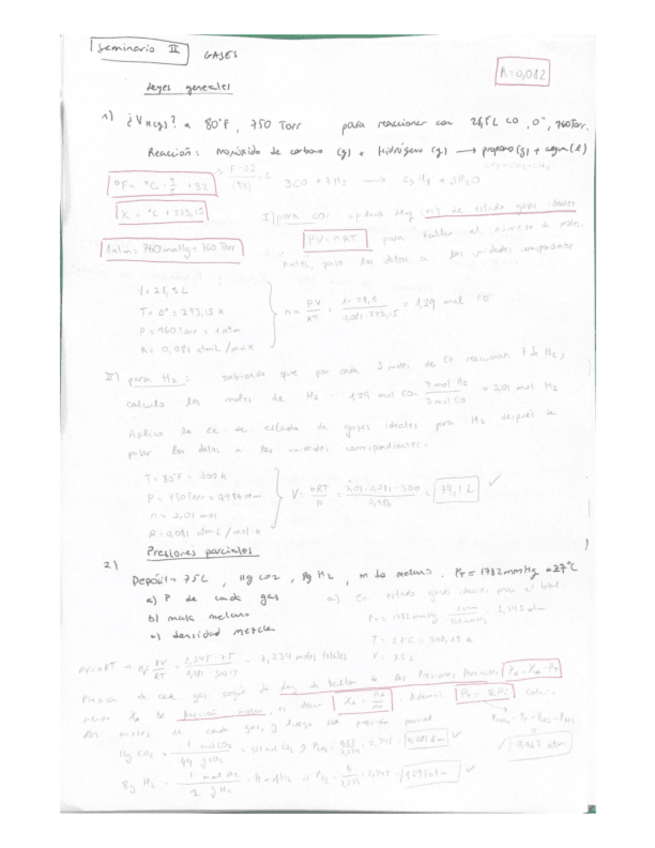 Seminario II GASES
Leyes generales
R=0,082
1) ¿V H2(g)? a 80°F, 750 Torr para reaccionar con 28,5L CO, 0°, 760Torr.
Reacción: monóxido de carbono (g) + Hidrógeno (g) → propano(g) + agua(l)
3CO + 7H2 → C3H8 + 3H2O
°F = °C · 9/5 + 32
K = °C + 273,15
1atm = 760mmHg = 760 Torr
I) para CO: aplico ley (ec) de estado gases ideales
PV=nRT para hallar el número de moles.
Antes, paso los datos a las unidades correspondientes
V = 28,5 L
T = 0° = 273,15 K
P = 760Torr = 1atm
R = 0,082 atmL/mol·K
n = PV/RT = 1·28,5/0,082·273,15 = 1,29 mol CO
II) para H2: sabiendo que por cada 3 moles de CO reaccionan 7 de H2,
calculo los moles de H2 · 1,29 mol CO · 7 mol H2/3 mol CO = 3,01 mol H2
Aplico la ec. de estado de gases ideales para H2 después de
pasar los datos a las unidades correspondientes.
T = 80°F = 300 K
P = 750Torr = 0,986 atm
n = 3,01 mol
R = 0,082 atm·L/mol·K
V = nRT/P = 3,01·0,082·300/0,986 = 75,1 L
Presiones parciales
2)
Depósito 75L, 11g CO2, 8g H2, m de metano. PT = 1782mmHg a 27°C
a) P de cada gas
b) masa metano
c) densidad mezcla
a) Ec estado gases ideales para el total
PT = 1782 mmHg · 1atm/760mmHg = 2,345 atm
T = 27°C = 300,15 K
V = 75L
PV=nRT → nT = PV/RT = 2,345·75/0,082·300,15 = 7,234 moles totales
Presión de cada gas según la ley de Dalton de las Presiones Parciales PA = XA · PT
siendo XA la fracción molar, es decir XA = nA/nT. Además PT = ΣPi
los moles de cada gas, y luego su presión parcial
11g CO2 · 1 mol CO2/44 g CO2 = 0,25 mol CO2
8g H2 · 1 mol H2/2 g H2 = 4 mol H2 → PH2 = 4/7,234 · 2,345 = 1,297atm